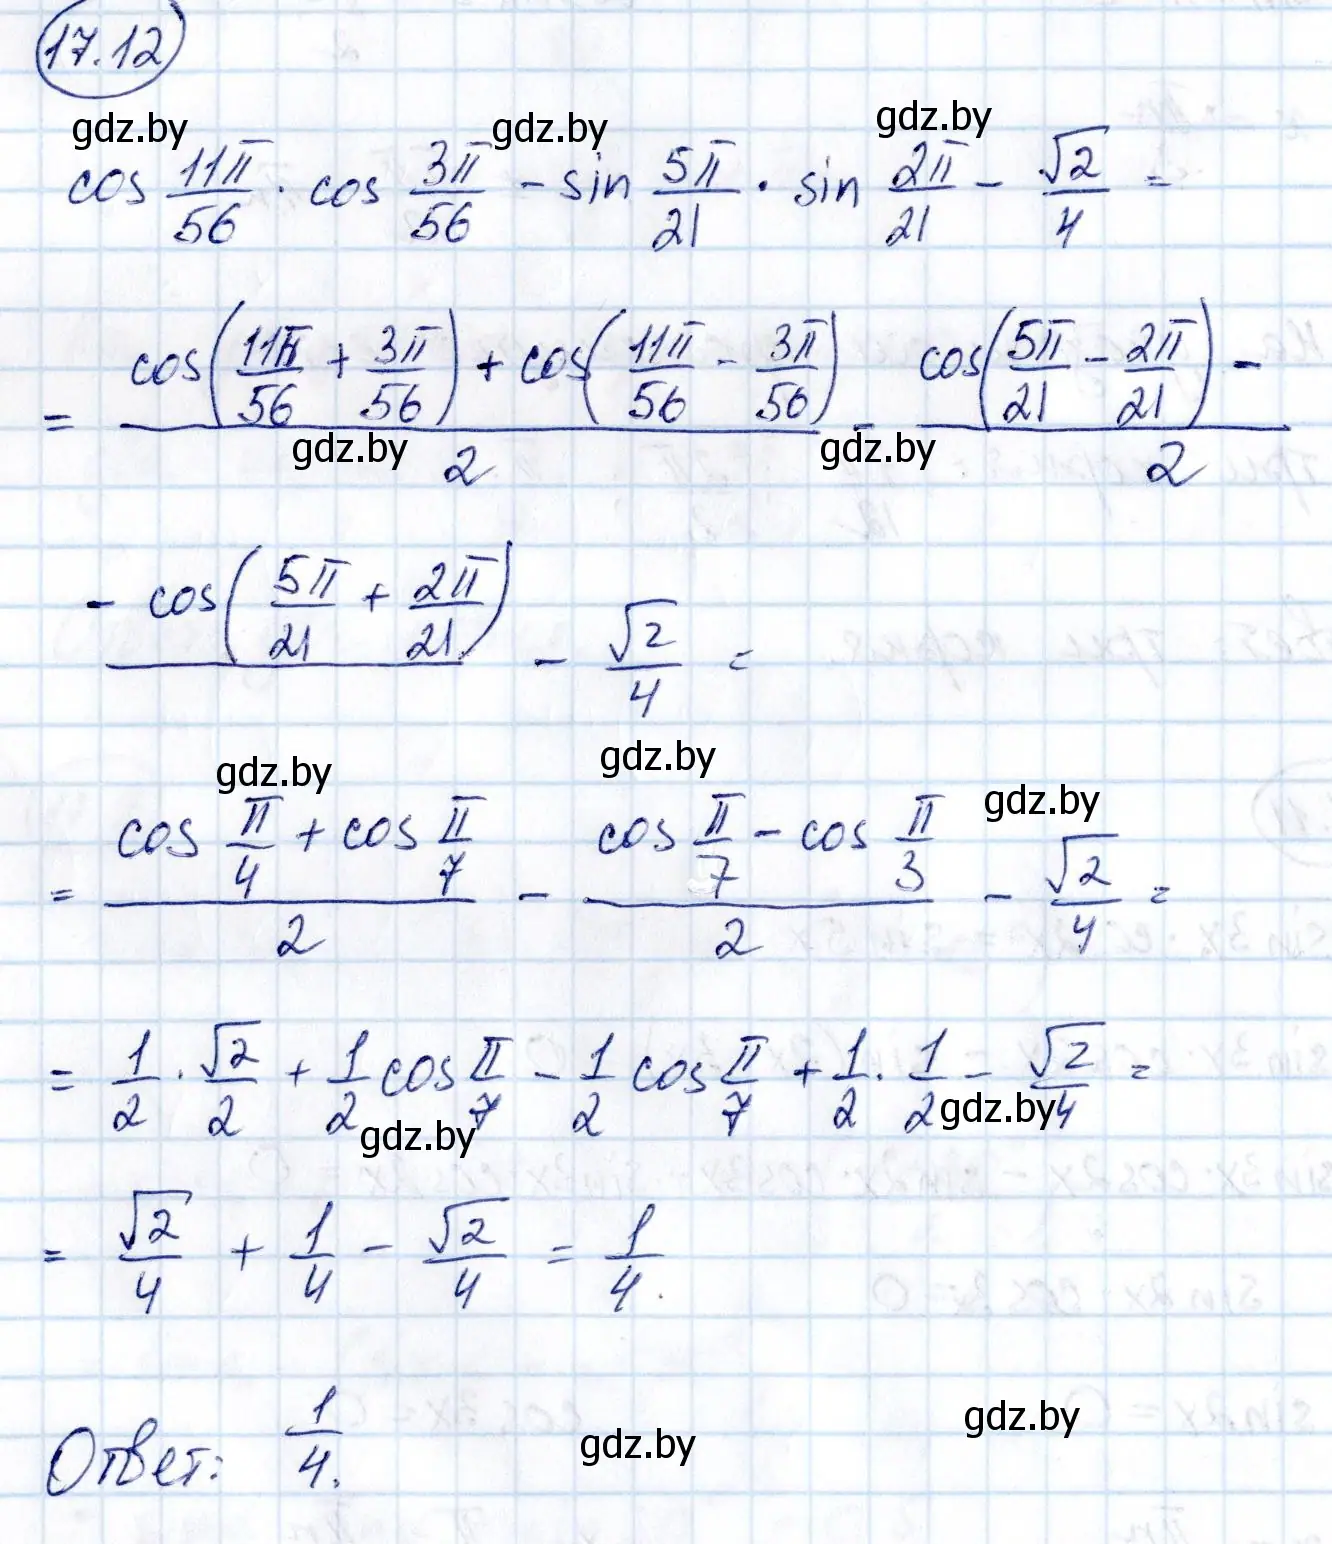 17.12
gdz.by gdz.by gdz.by
cos 11π/56 · cos 3π/56 - sin 5π/21 · sin 2π/21 - √2/4 =
= (cos(11π/56 + 3π/56) + cos(11π/56 - 3π/56))/2 - (cos(5π/21 - 2π/21) -)/2
gdz.by gdz.by
- cos(5π/21 + 2π/21) - √2/4 =
gdz.by gdz.by gdz.by
= (cos π/4 + cos π/7)/2 - (cos π/7 - cos π/3)/2 - √2/4 =
= 1/2 · √2/2 + 1/2 cos π/7 - 1/2 cos π/7 + 1/2 · 1/2 - √2/4 =
gdz.by gdz.by
= √2/4 + 1/4 - √2/4 = 1/4.
Ответ: 1/4.
gdz.by gdz.by